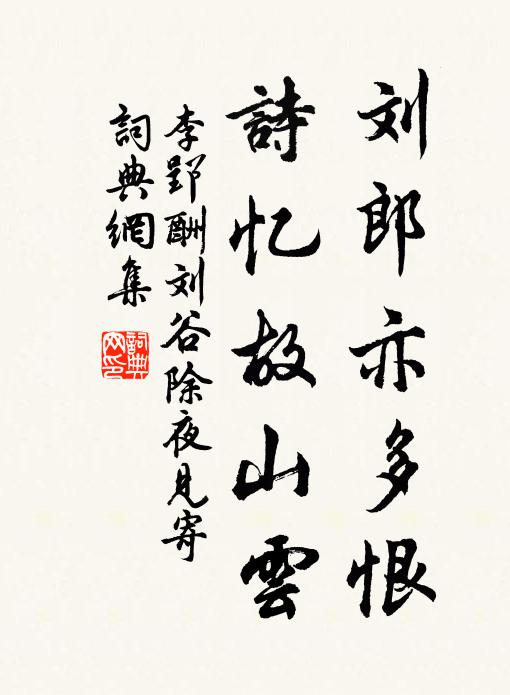 刘郎亦多恨
詩忆故山雲
李郢酬刘谷除夜見寄
詞典網集
詞典網印